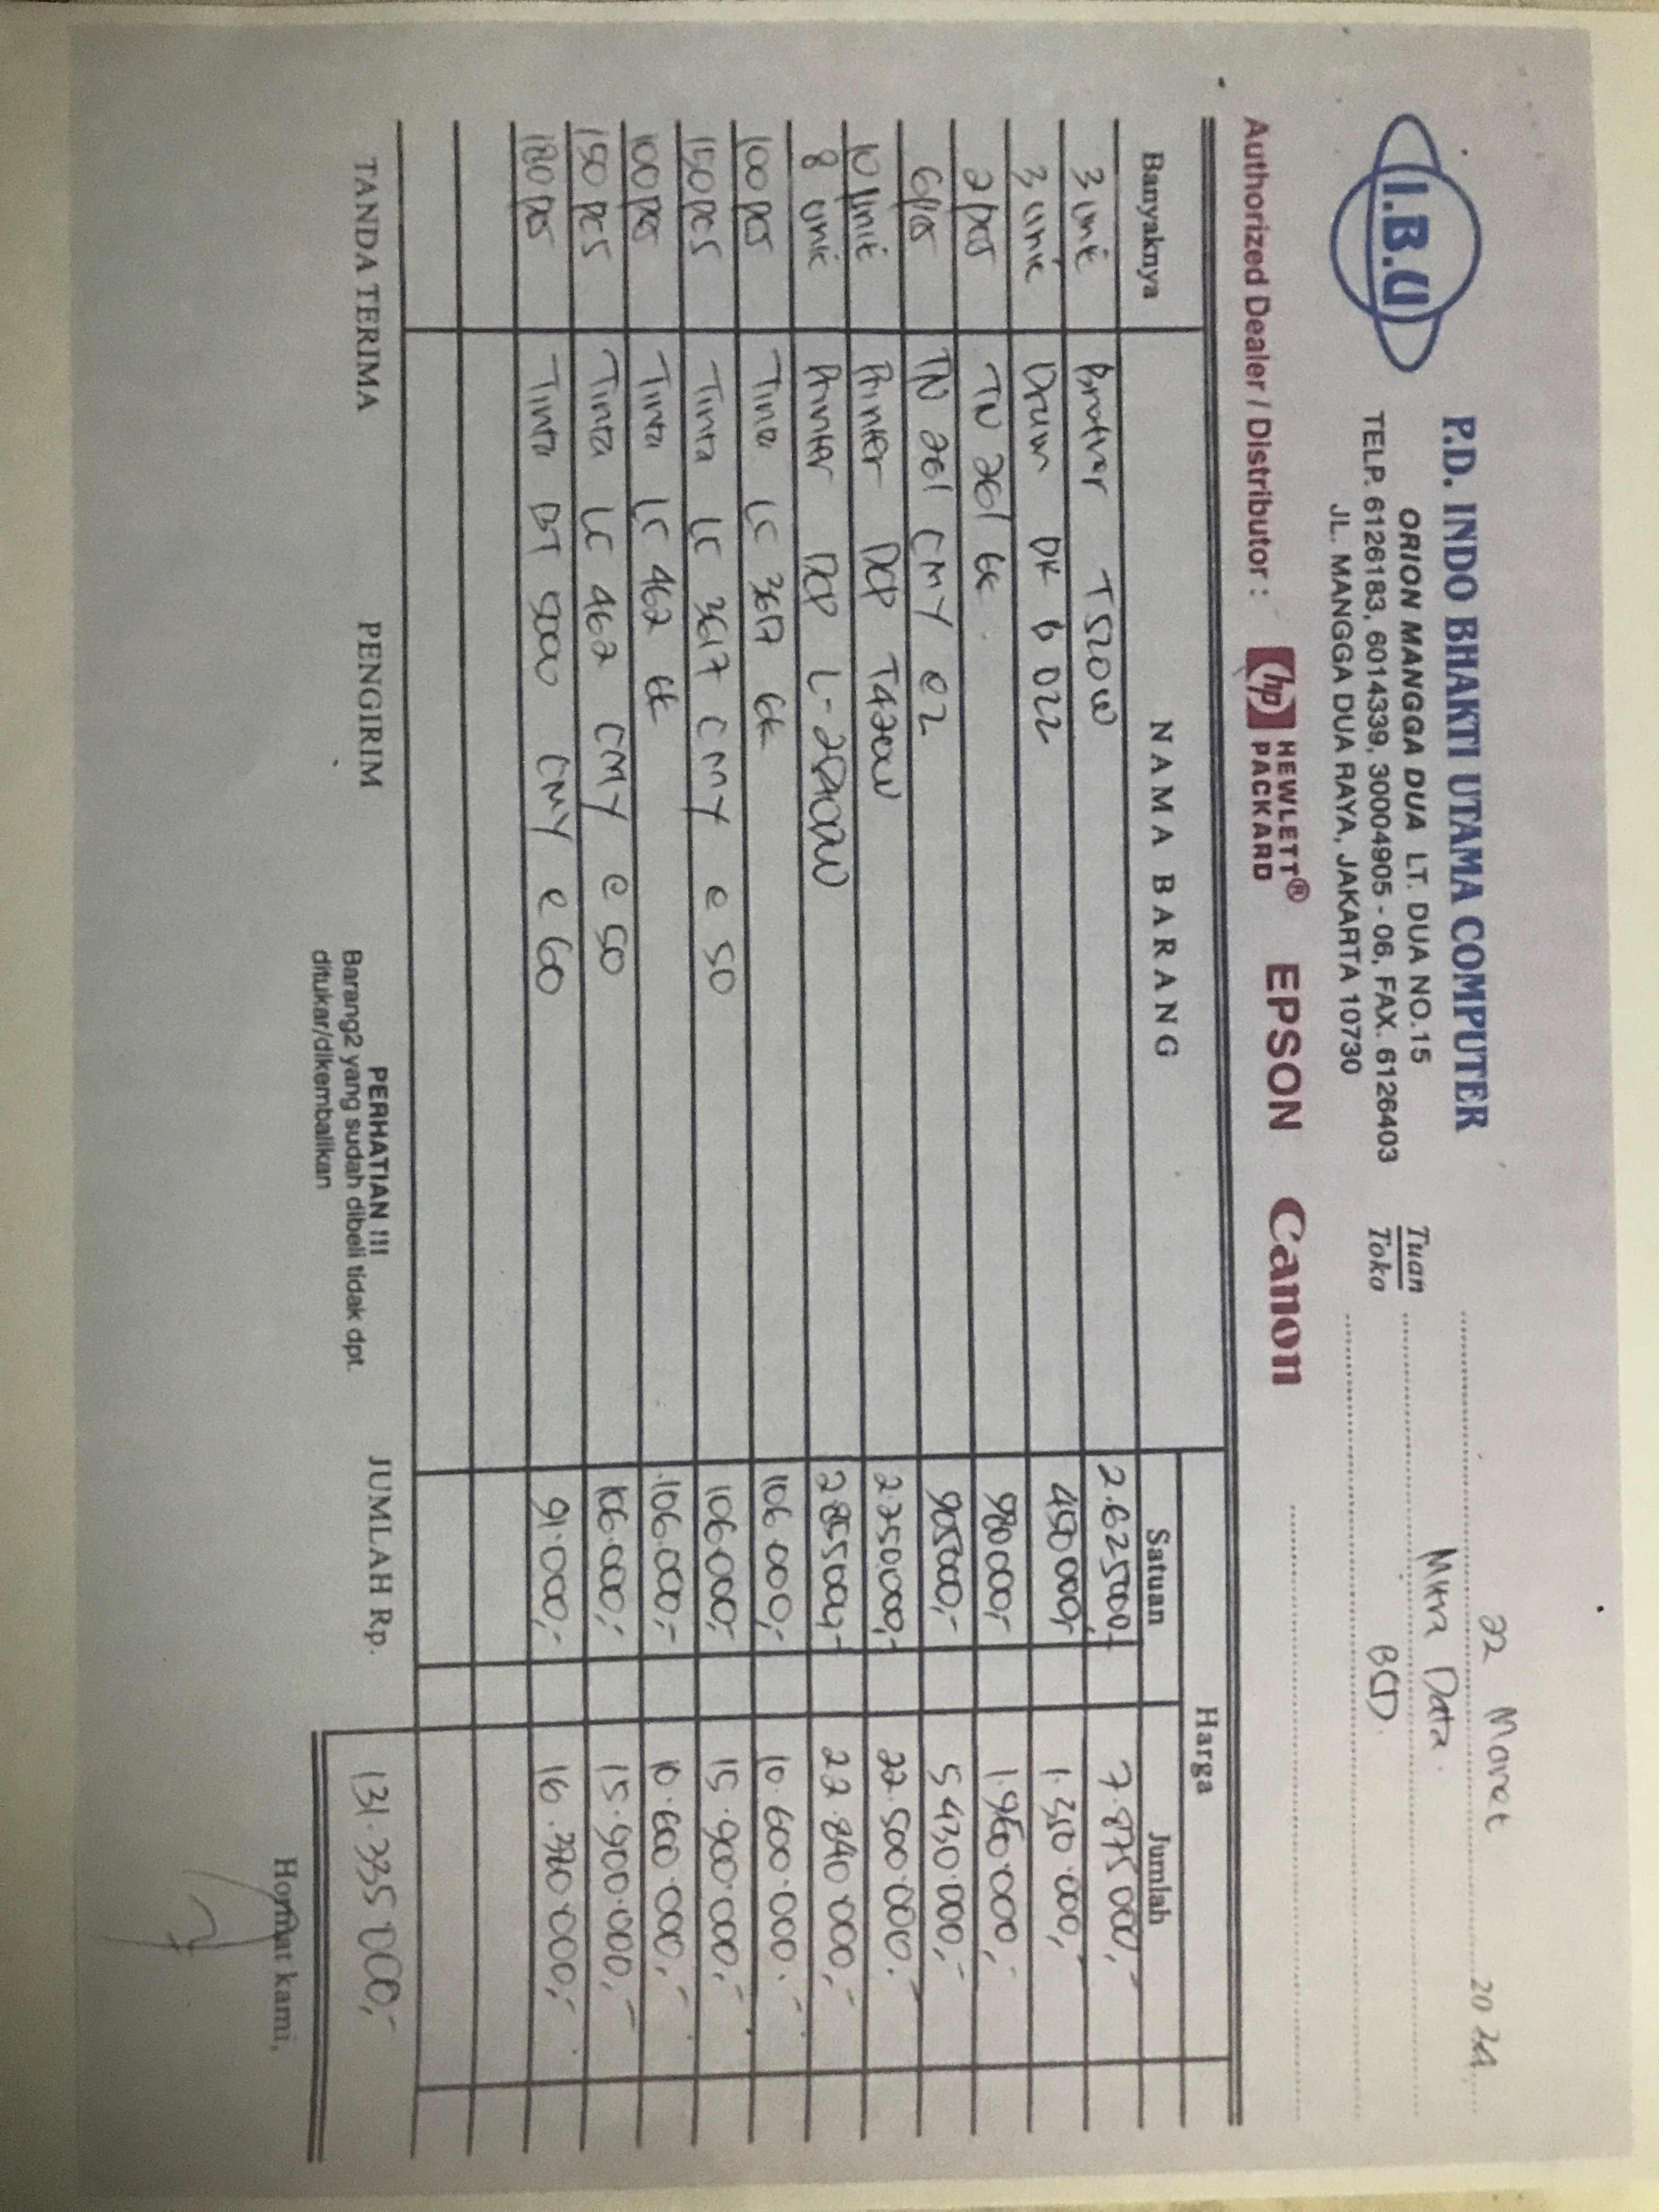 I.B.U
P.D. INDO BHAKTI UTAMA COMPUTER
ORION MANGGA DUA LT. DUA NO.15
TELP. 6126183, 6014339, 30004905 - 06, FAX. 6126403
JL. MANGGA DUA RAYA, JAKARTA 10730
22 Maret 20 24
Tuan Mitra Data
Toko BCD.
Authorized Dealer / Distributor : hp HEWLETT® PACKARD EPSON Canon
Banyaknya NAMA BARANG Harga
Satuan Jumlah
3 unit Brother T520W 2.625000,- 7.875 000,-
3 unit Drum DK B 022 450 000,- 1.350 000,-
2 pcs TN 261 BK 980 000,- 1.960.000,-
6 pcs TN 261 CMY @2 905000,- 5.430.000,-
10 Unit Printer DCP T420W 2.250.000,- 22.500.000.-
8 unit Printer DCP 2.855000,- 22.840.000,-
100 pcs Tinta LC 3617 BK 106.000,- 10.600.000.-
150 pcs Tinta LC 3617 CMY @ 50 106.000,- 15.900.000,-
100 pcs Tinta LC 462 BK 106.000,- 10.600.000,-
150 pcs Tinta LC 462 CMY @ 50 106.000,- 15.900.000,-
180 pcs Tinta BT 5000 CMY @ 60 91.000,- 16.380.000,-
TANDA TERIMA PENGIRIM PERHATIAN !!! JUMLAH Rp. 131.335 000,-
Barang2 yang sudah dibeli tidak dpt.
ditukar/dikembalikan
Hormat kami,